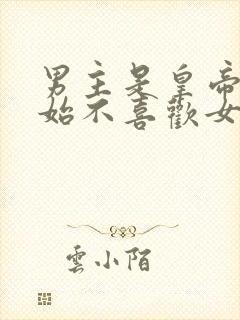 男主是皇帝
始不喜歡女
雲小陌